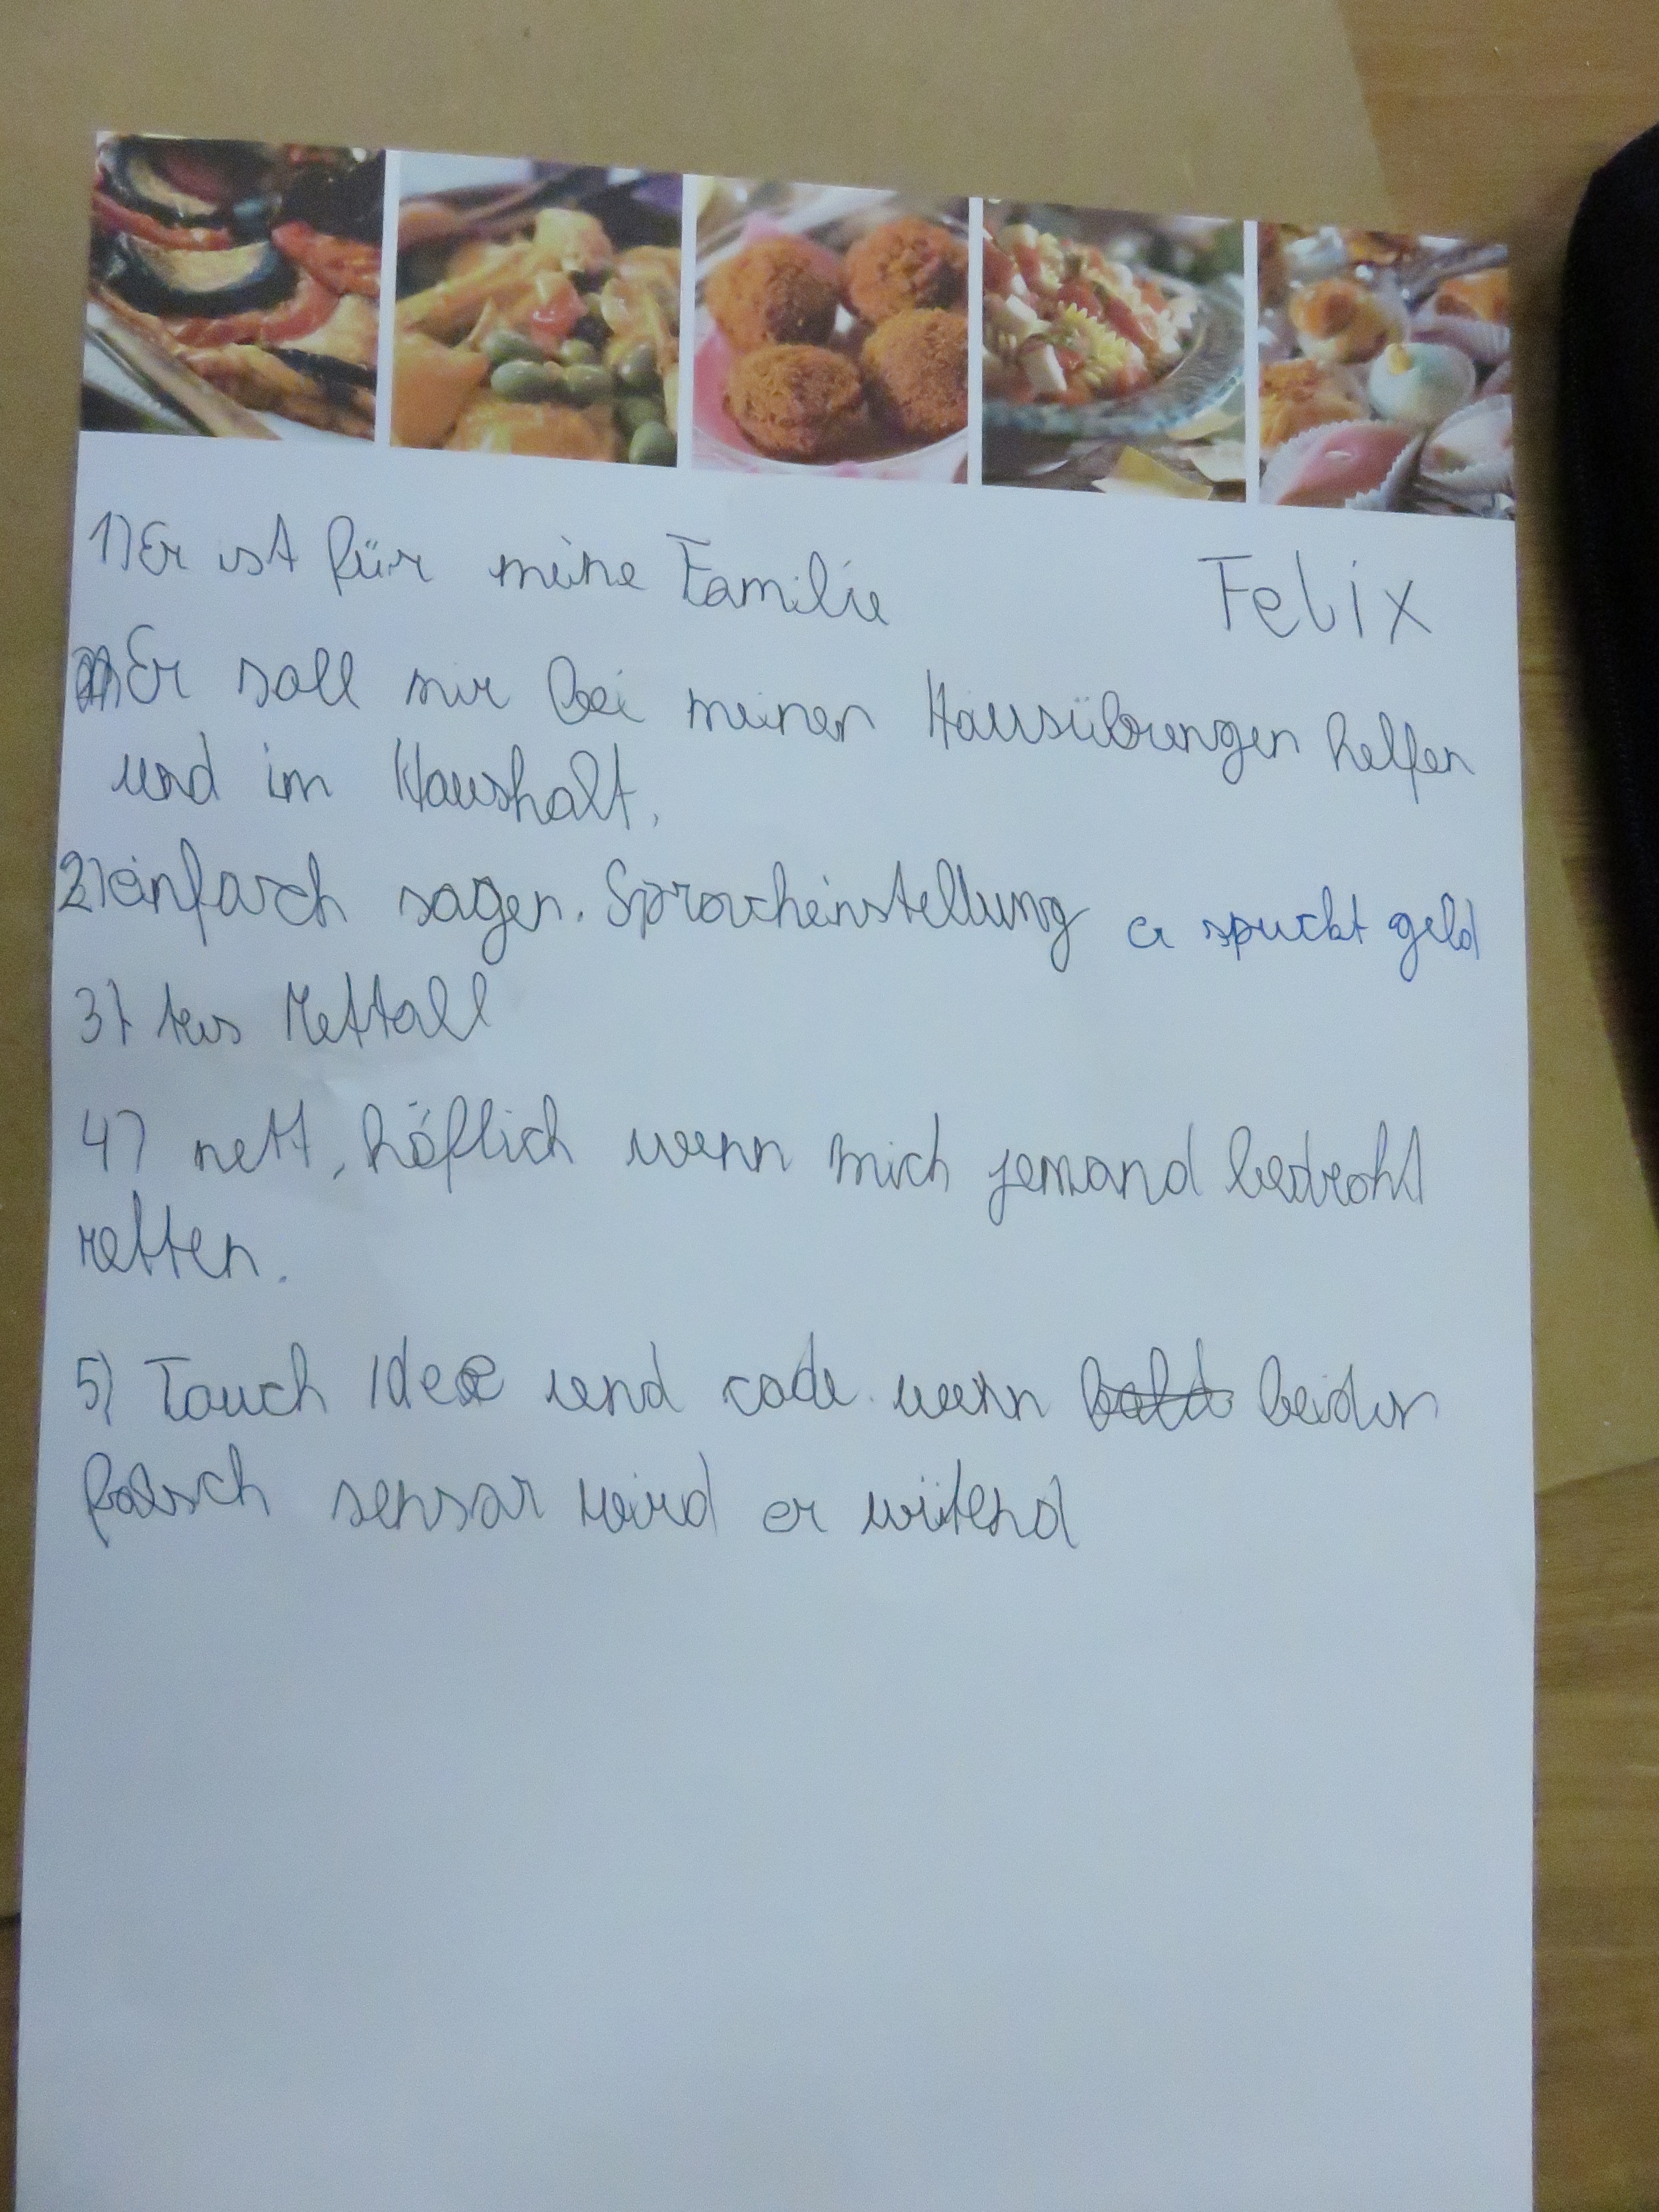 1) Er ist für meine Familie
Felix
Er soll mir bei meinen Hausübungen helfen
und im Haushalt.
2) einfach sagen. Spracheinstellung er spuckt geld
3) Aus Mettall
4) nett, höflich wenn mich jemand bedroht
retten.
5) Touch Idee und code wenn beides
falsch sensor wird er wütend